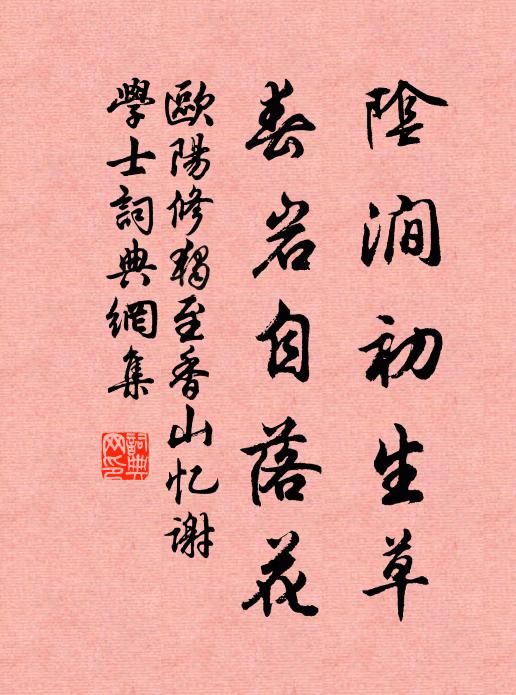 陰澗初生草
春岩自落花
歐陽修獨至香山忆謝
學士詞典網集
詞典網印